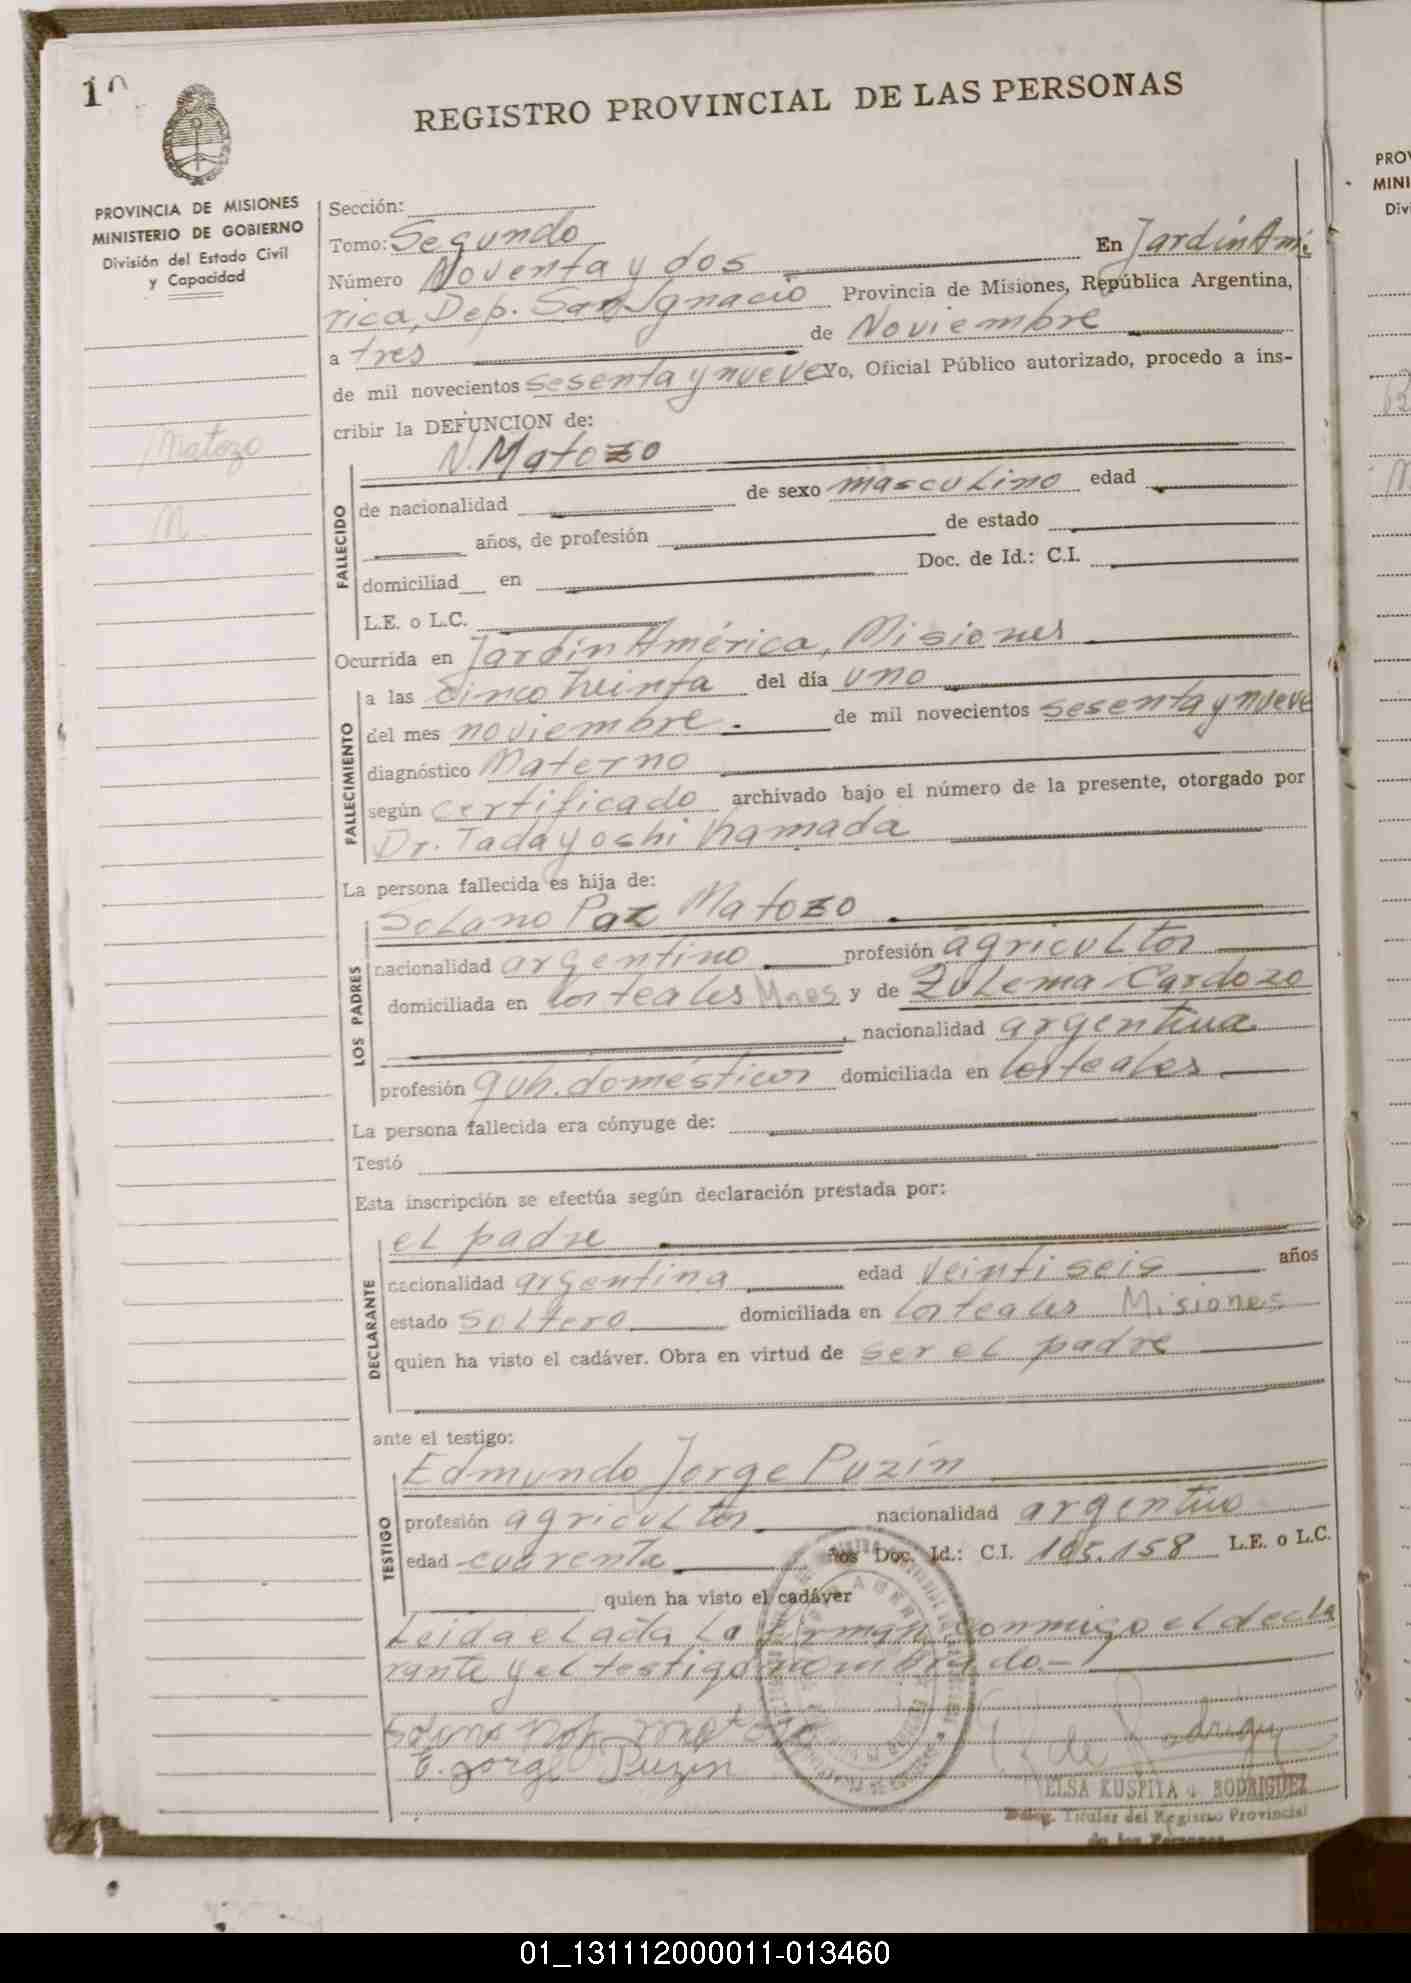 REGISTRO PROVINCIAL DE LAS PERSONAS
PROVINCIA DE MISIONES
MINISTERIO DE GOBIERNO
División del Estado Civil
y Capacidad
Matozo
N.
Sección:
Tomo: Segundo
Número Noventa y dos En Jardín Amé
rica, Dep. San Ignacio Provincia de Misiones, República Argentina,
a tres de Noviembre
de mil novecientos sesenta y nueve Yo, Oficial Público autorizado, procedo a ins-
cribir la DEFUNCION de:
N. Matozo
FALLECIDO
de nacionalidad de sexo masculino edad
años, de profesión de estado
domiciliad en Doc. de Id.: C.I.
L.E. o L.C.
Ocurrida en Jardín América, Misiones
FALLECIMIENTO
a las cinco treinta del día uno
del mes noviembre. de mil novecientos sesenta y nueve
diagnóstico Materno
según certificado archivado bajo el número de la presente, otorgado por
Dr. Tadayoshi Kamada
La persona fallecida es hija de:
LOS PADRES
Solano Paz Matozo
nacionalidad argentino profesión agricultor
domiciliada en los teales Mnes y de Zulema Cardozo
, nacionalidad argentina
profesión quh. domésticos domiciliada en los teales
La persona fallecida era cónyuge de:
Testó
Esta inscripción se efectúa según declaración prestada por:
DECLARANTE
el padre
nacionalidad argentina edad veintiseis años
estado soltero domiciliada en los teales Misiones
quien ha visto el cadáver. Obra en virtud de ser el padre
ante el testigo:
TESTIGO
Edmundo Jorge Puzin
profesión agricultor nacionalidad argentino
edad cuarenta años Doc. Id.: C.I. 105.158 L.E. o L.C.
quien ha visto el cadáver
Leida el acta la firman conmigo el decla
rante y el testigo nombrado.-
E. Jorge Puzin
ELSA KUSPITA d. RODRIGUEZ
Deleg. Titular del Registro Provincial
de las Personas
PROV
MINI
Divi
01_131112000011-013460